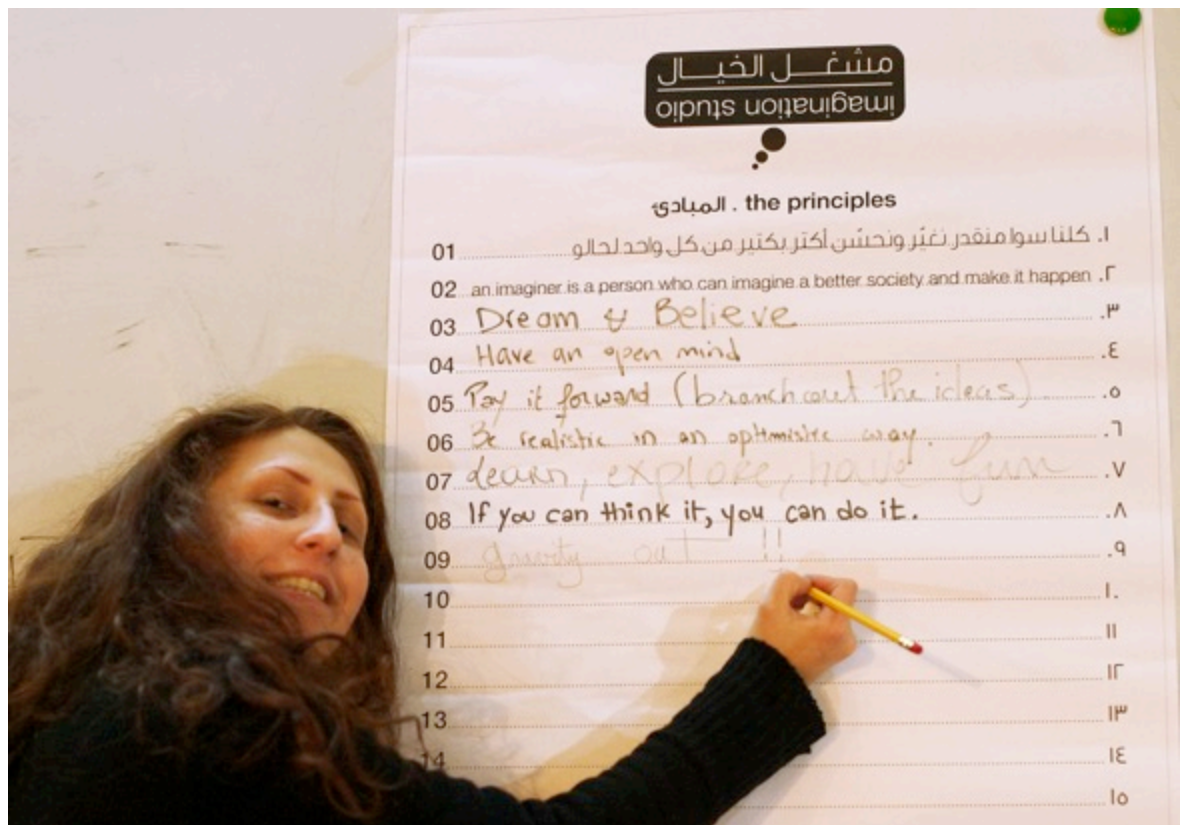 مشغل الخيال
imagination studio
المبادئ . the principles
01 كلنا سوا منقدر نغيّر ونحسّن أكتر بكتير من كل واحد لحالو .١
02 an imaginer is a person who can imagine a better society and make it happen .٢
03 Dream & Believe .٣
04 Have an open mind .٤
05 Pay it forward (branch out the ideas) .٥
06 Be realistic in an optimistic way. .٦
07 Learn, explore, have fun .٧
08 If you can think it, you can do it. .٨
09 gravity out !! .٩
10 ١٠.
11 ١١
12 ١٢
13 ١٣
14 ١٤
١٥